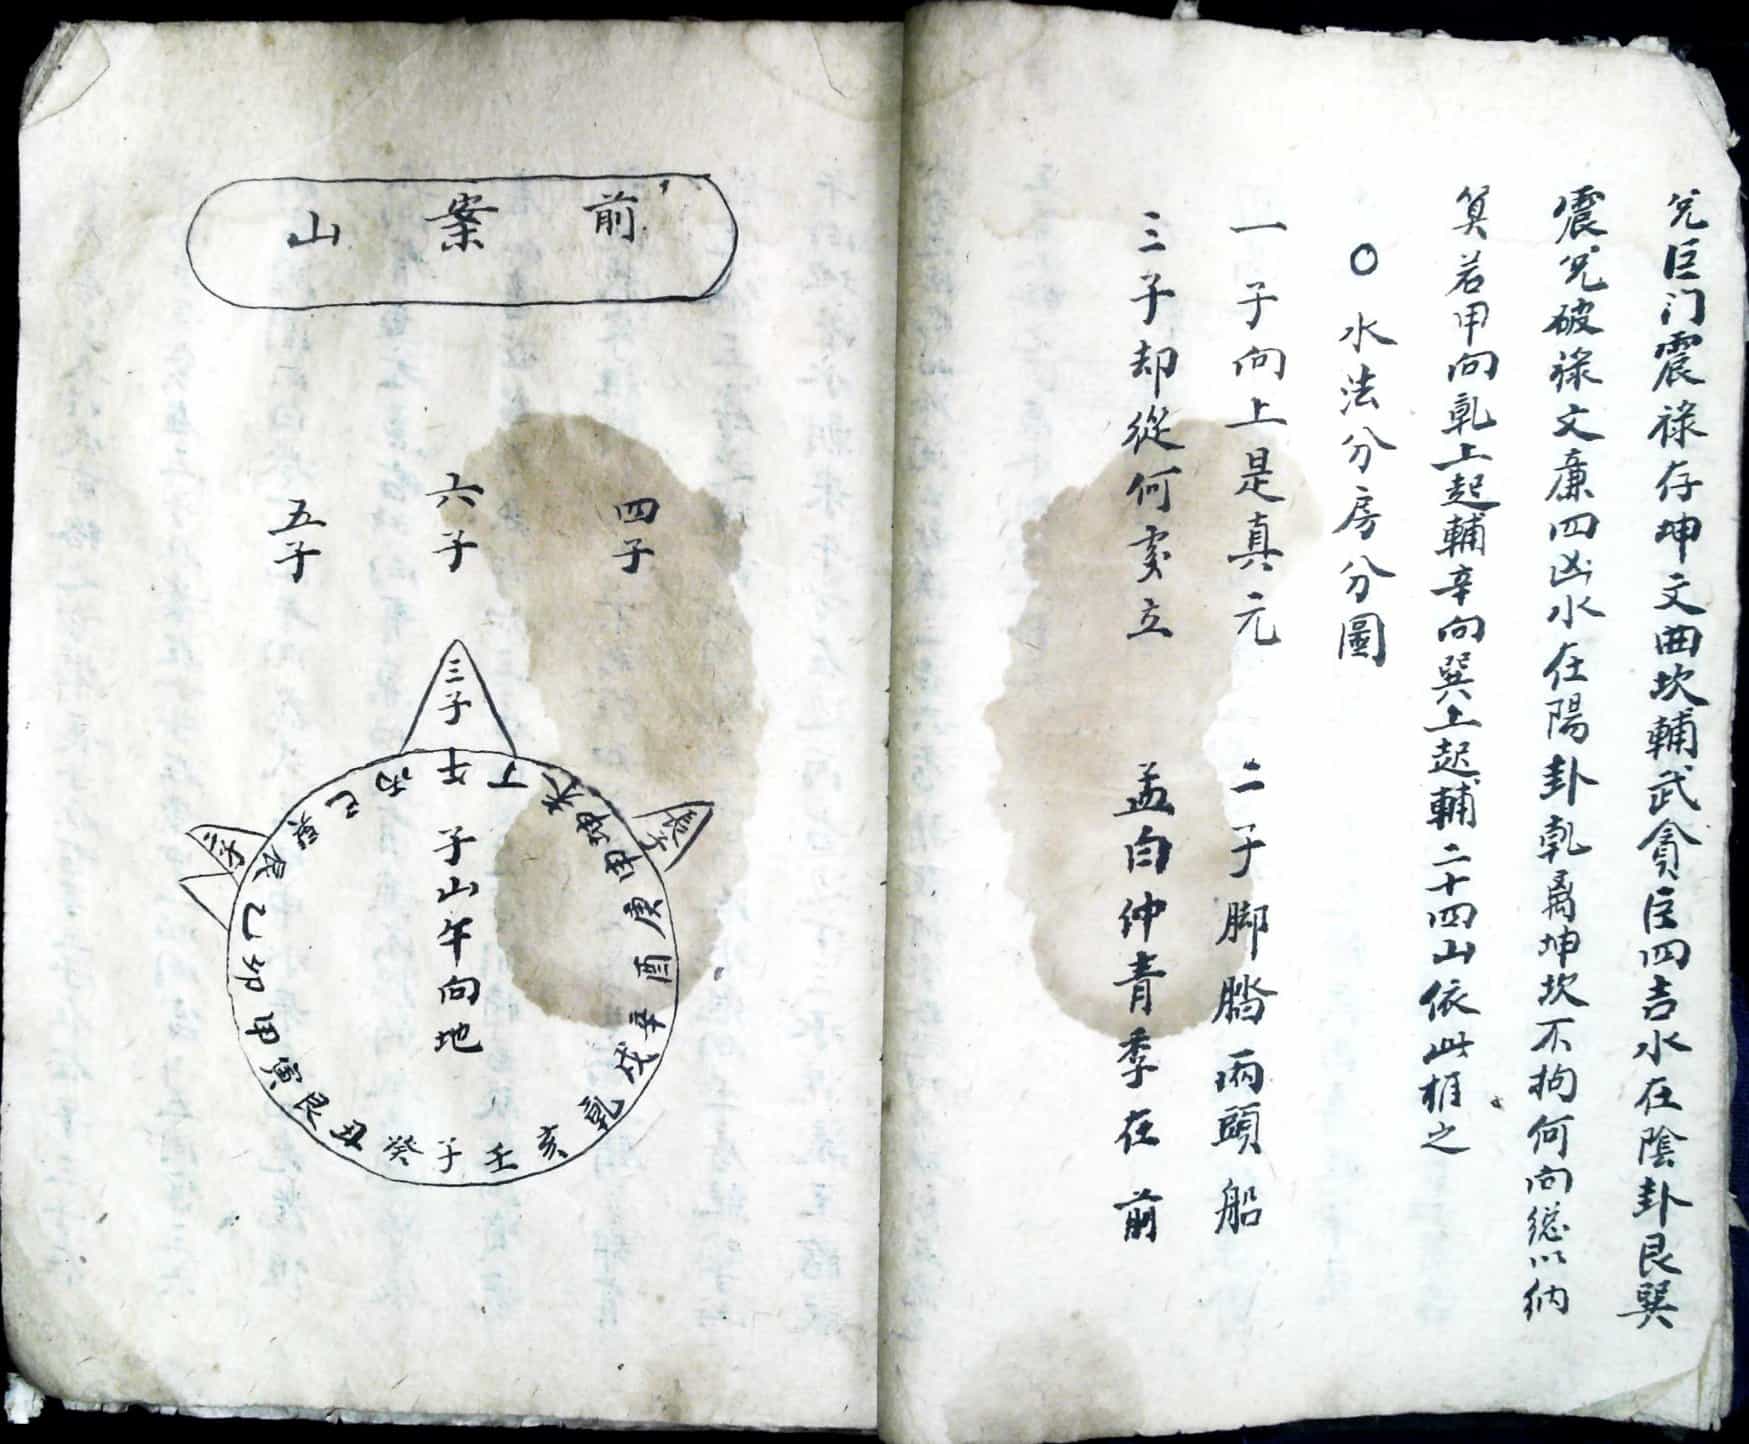 兊巨门震祿存坤文曲坎輔武貪巨四吉水在陰卦艮巽
震兊破祿文亷四凶水在陽卦乾离坤坎不拘何向縂以納
算若甲向乾上起輔辛向巽上起輔二十四山依此推之
○水法分房分圖
一子向上是真元 二子脚踏兩頭船
三子却從何䖏立 孟白仲青季在前
前案山
四子
六子
五子
三子
丁未坤申庚酉辛戌乾亥壬子癸丑艮寅甲卯乙辰巽巳丙午
子山午向地